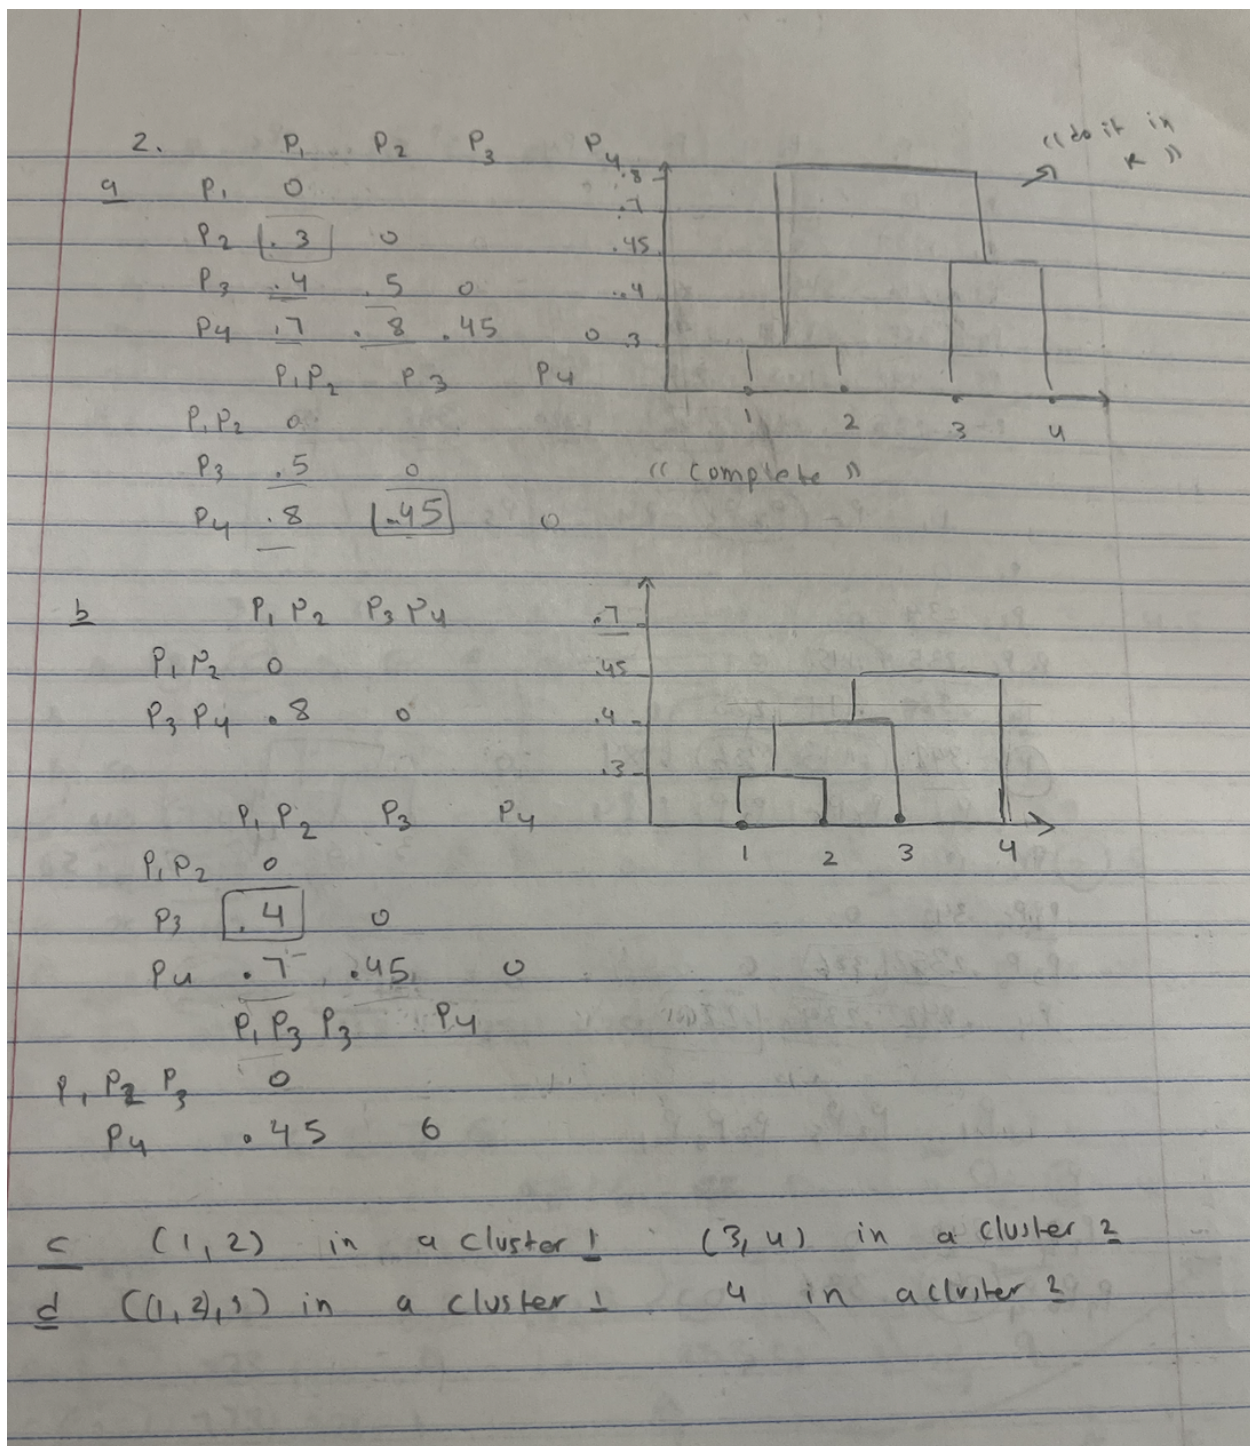 2. P1 P2 P3 P4
a P1 0
P2 .3 0
P3 .4 .5 0
P4 .7 .8 .45 0
P1P2 P3 P4
P1P2 0
P3 .5 0
P4 .8 .45 0
.8
.7
.45
.4
.3
1 2 3 4
"do it in
R"
"complete"
b P1 P2 P3 P4
P1 P2 0
P3 P4 .8 0
P1 P2 P3 P4
P1P2 0
P3 .4 0
P4 .7 .45 0
P1 P3 P3 P4
P1 P2 P3 0
P4 .45 0
.7
.45
.4
.3
1 2 3 4
c (1,2) in a cluster 1 (3,4) in a cluster 2
d ((1,2),3) in a cluster 1 4 in a cluster 2